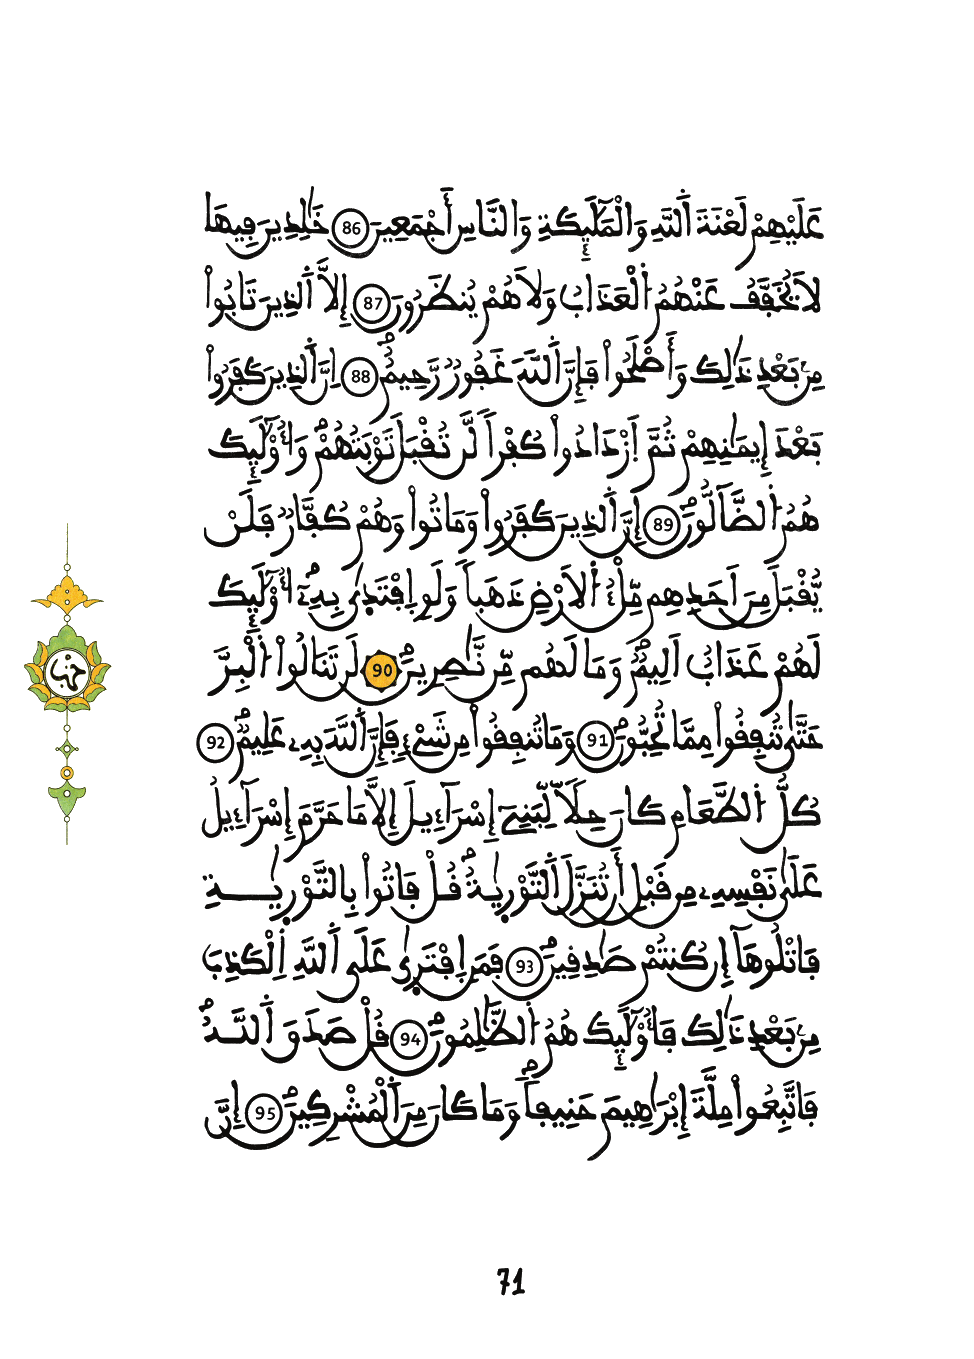 عَلَيْهِمْ لَعْنَةَ اَ۬للَّهِ وَالْمَلَٰٓئِكَةِ وَالنَّاسِ أَجْمَعِينَ 86 خَٰلِدِينَ فِيهَا
لَا يُخَفَّفُ عَنْهُمُ اُ۬لْعَذَابُ وَلَا هُمْ يُنظَرُونَ 87 إِلَّا اَ۬لذِينَ تَابُواْ
مِنۢ بَعْدِ ذَٰلِكَ وَأَصْلَحُواْ فَإِنَّ اَ۬للَّهَ غَفُورٞ رَّحِيمٌۖ 88 اِنَّ اَ۬لذِينَ كَفَرُواْ
بَعْدَ إِيمَٰنِهِمْ ثُمَّ اَ۪زْدَادُواْ كُفْراٗ لَّن تُقْبَلَ تَوْبَتُهُمْۖ وَأُوْلَٰٓئِكَ
هُمُ اُ۬لضَّآلُّونَۖ 89 إِنَّ اَ۬لذِينَ كَفَرُواْ وَمَاتُواْ وَهُمْ كُفَّارٞ فَلَنْ
يُّقْبَلَ مِنَ اَحَدِهِم مِّلْءُ اُ۬لَارْضِ ذَهَباٗ وَلَوِ اِ۪فْتَد۪ىٰ بِهِۦٓۖ أُوْلَٰٓئِكَ
لَهُمْ عَذَابٌ اَلِيمٞۖ وَمَا لَهُم مِّن نَّٰصِرِينَۖ 90 لَن تَنَالُواْ اُ۬لْبِرَّ
حَتَّىٰ تُنفِقُواْ مِمَّا تُحِبُّونَۖ 91 وَمَا تُنفِقُواْ مِن شَےْءٖ فَإِنَّ اَ۬للَّهَ بِهِۦ عَلِيمٞۖ 92
كُلُّ اُ۬لطَّعَامِ كَانَ حِلّاٗ لِّبَنِےٓ إِسْرَآءِيلَ إِلَّا مَا حَرَّمَ إِسْرَآءِيلُ
عَلَىٰ نَفْسِهِۦ مِن قَبْلِ أَن تُنَزَّلَ اَ۬لتَّوْر۪يٰةُۖ قُلْ فَاتُواْ بِالتَّوْر۪يٰةِ
فَاتْلُوهَآ إِن كُنتُمْ صَٰدِقِينَۖ 93 فَمَنِ اِ۪فْتَر۪ىٰ عَلَى اَ۬للَّهِ اِ۬لْكَذِبَ
مِنۢ بَعْدِ ذَٰلِكَ فَأُوْلَٰٓئِكَ هُمُ اُ۬لظَّٰلِمُونَۖ 94 قُلْ صَدَقَ اَ۬للَّهُۖ
فَاتَّبِعُواْ مِلَّةَ إِبْرَٰهِيمَ حَنِيفاٗۖ وَمَا كَانَ مِنَ اَ۬لْمُشْرِكِينَۖ 95 إِنَّ
حزب
71